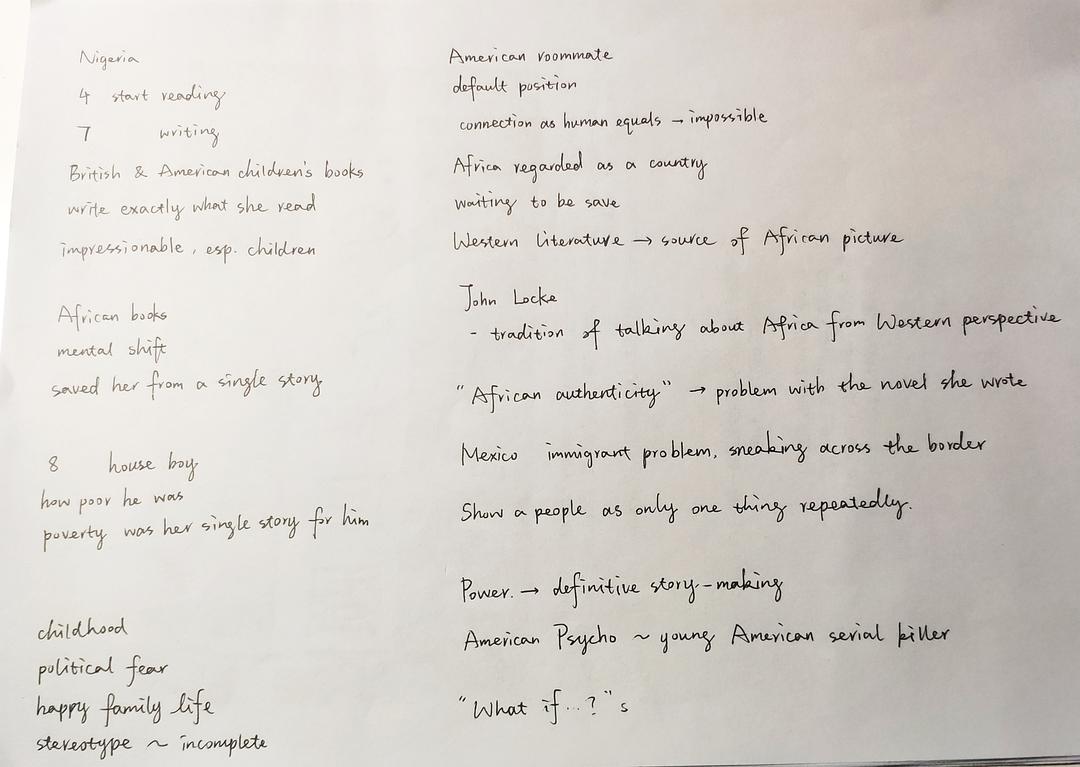 Nigeria
4 start reading
7 writing
British & American children's books
write exactly what she read
impressionable, esp. children
African books
mental shift
saved her from a single story
8 house boy
how poor he was
poverty was her single story for him
childhood
political fear
happy family life
stereotype ~ incomplete
American roommate
default position
connection as human equals → impossible
Africa regarded as a country
waiting to be save
Western literature → source of African picture
John Locke
- tradition of talking about Africa from Western perspective
"African authenticity" → problem with the novel she wrote
Mexico immigrant problem, sneaking across the border
Show a people as only one thing repeatedly.
Power. → definitive story-making
American Psycho ~ young American serial killer
"What if...?"s